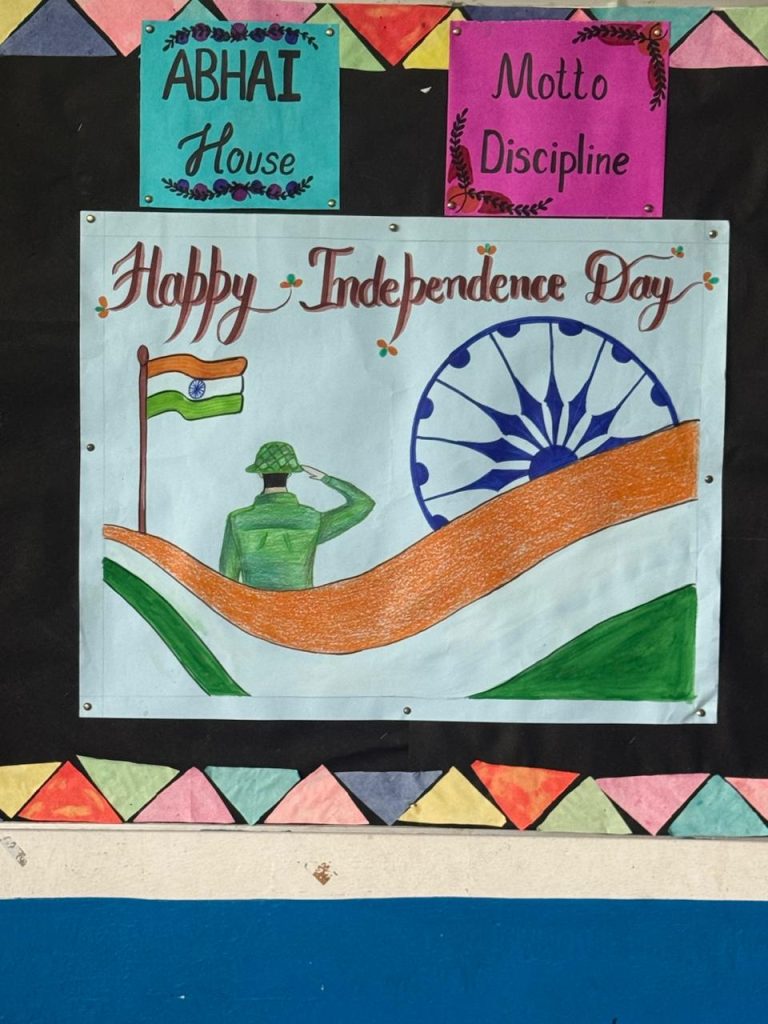 ABHAI
House
Motto
Discipline
Happy Independence Day